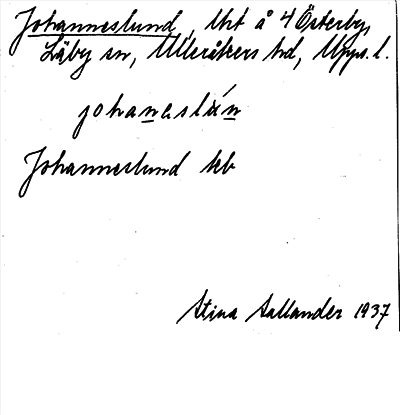 Johanneslund, lht å 4 Österby,
Läby sn, Ulleråkers hd, Upps. l.
johaneslún
Johannelund kb
Stina Sallander 1937